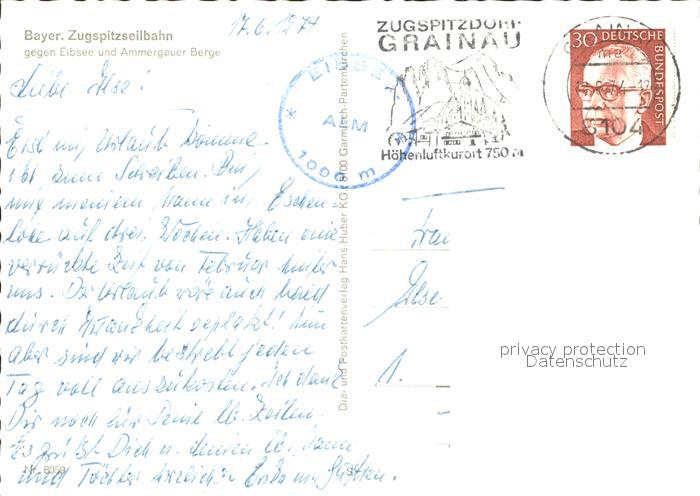 Bayer. Zugspitzseilbahn
gegen Eibsee und Ammergauer Berge
17.6.1974
Liebe Ilse!
Erst mit Urlaub
ich zum Schreiben. Bin
mit meinem Mann in Eschen-
lohe auf drei Wochen. Haben eine
verrückte Zeit von Februar hinter
uns. Der Urlaub wäre auch bald
durch Krankheit geplatzt! Nun
aber sind wir bestrebt jeden
Tag voll auszukosten. Ich danke
Dir noch für Deine lb. Zeilen.
Es grüßt Dich u. deinen lb. Mann
und Töchter herzlichst Erika m. Gusttav.
Nr. 8059
Dia- und Postkartenverlag Hans Huber KG · 8100 Garmisch-Partenkirchen
EIBSEE
ALM
1000 m
ZUGSPITZDORF
GRAINAU
Höhenluftkurort 750 m
GRAINAU
8104
30 DEUTSCHE
BUNDESPOST
Frau
Ilse
1.
privacy protection
Datenschutz